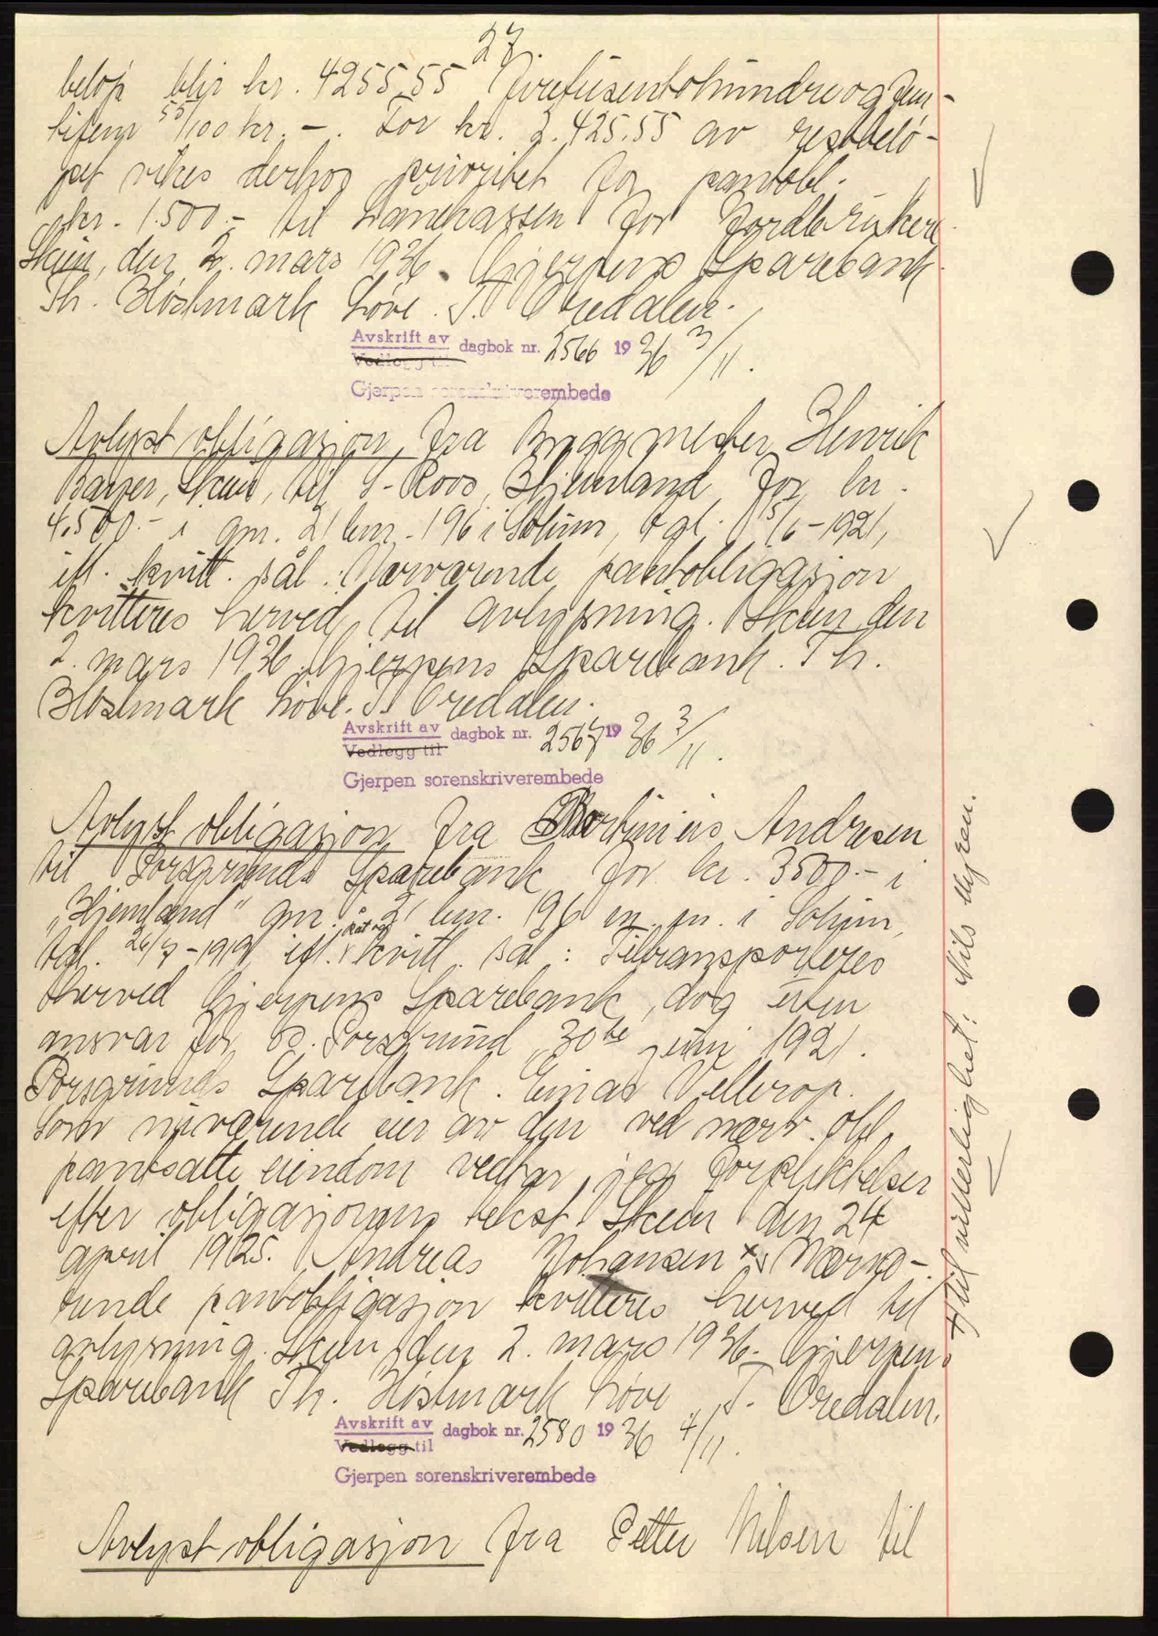 27.
beløp blir kr. 4255.55 firetusentohundreogfem-
tifem 55/100 kr. -. For kr. 2.425.55 av restbelø-
pet vikes derhos prioritet for pantobl.
kr. 1.500.- til Lånekassen for Jordbrukere.
Skien, den 2. mars 1936. Gjerpens Sparebank.
Th. Holtmark Høve. T. Oredalen.
Avskrift av dagbok nr. 2566 1936 3/11.
Vedlegg til
Gjerpen sorenskriverembede
Avlyst obligasjon fra Byggmester Henrik
Skien, til S. Roos, Hjemland, for kr.
4.500.- i gnr. 21 bnr. 196 i Solum, tgl. 15/6-1921,
ifl. kvitt. sål: Nærværende pantobligasjon
kvitteres herved til avlysning. Skien den
2. mars 1936. Gjerpens Sparebank. Th.
Holtmark Høve. T. Oredalen.
Avskrift av dagbok nr. 2567 1936 3/11.
Vedlegg til
Gjerpen sorenskriverembede
Avlyst obligasjon fra Andresen
til Porsgrunds Sparebank for kr. 3500.- i
"Hjemland" gnr. 21 bnr. 196 m. m. i Solum,
tgl. 26/7-1919, ifl. kvitt. sål: Tiltransporteres
herved Gjerpens Sparebank, dog uten
ansvar for os. Porsgrund, 30te juni 1921.
Porsgrunds Sparebank. Einar Vellerop.
Som nuværende eier av den ved nærv. obl.
pantsatte eiendom vedtar jeg forpliktelser
efter obligasjonens tekst. Skien den 24
april 1925. Andreas Johansen x) Nærvæ-
rende pantobligasjon kvitteres herved til
avlysning. Skien den 2. mars 1936. Gjerpens
Sparebank Th. Holtmark Høve T. Oredalen.
x) til vitterlighet: Nils Myren.
Avskrift av dagbok nr. 2580 1936 4/11.
Vedlegg til
Gjerpen sorenskriverembede
Avlyst obligasjon fra Petter Nilsen til